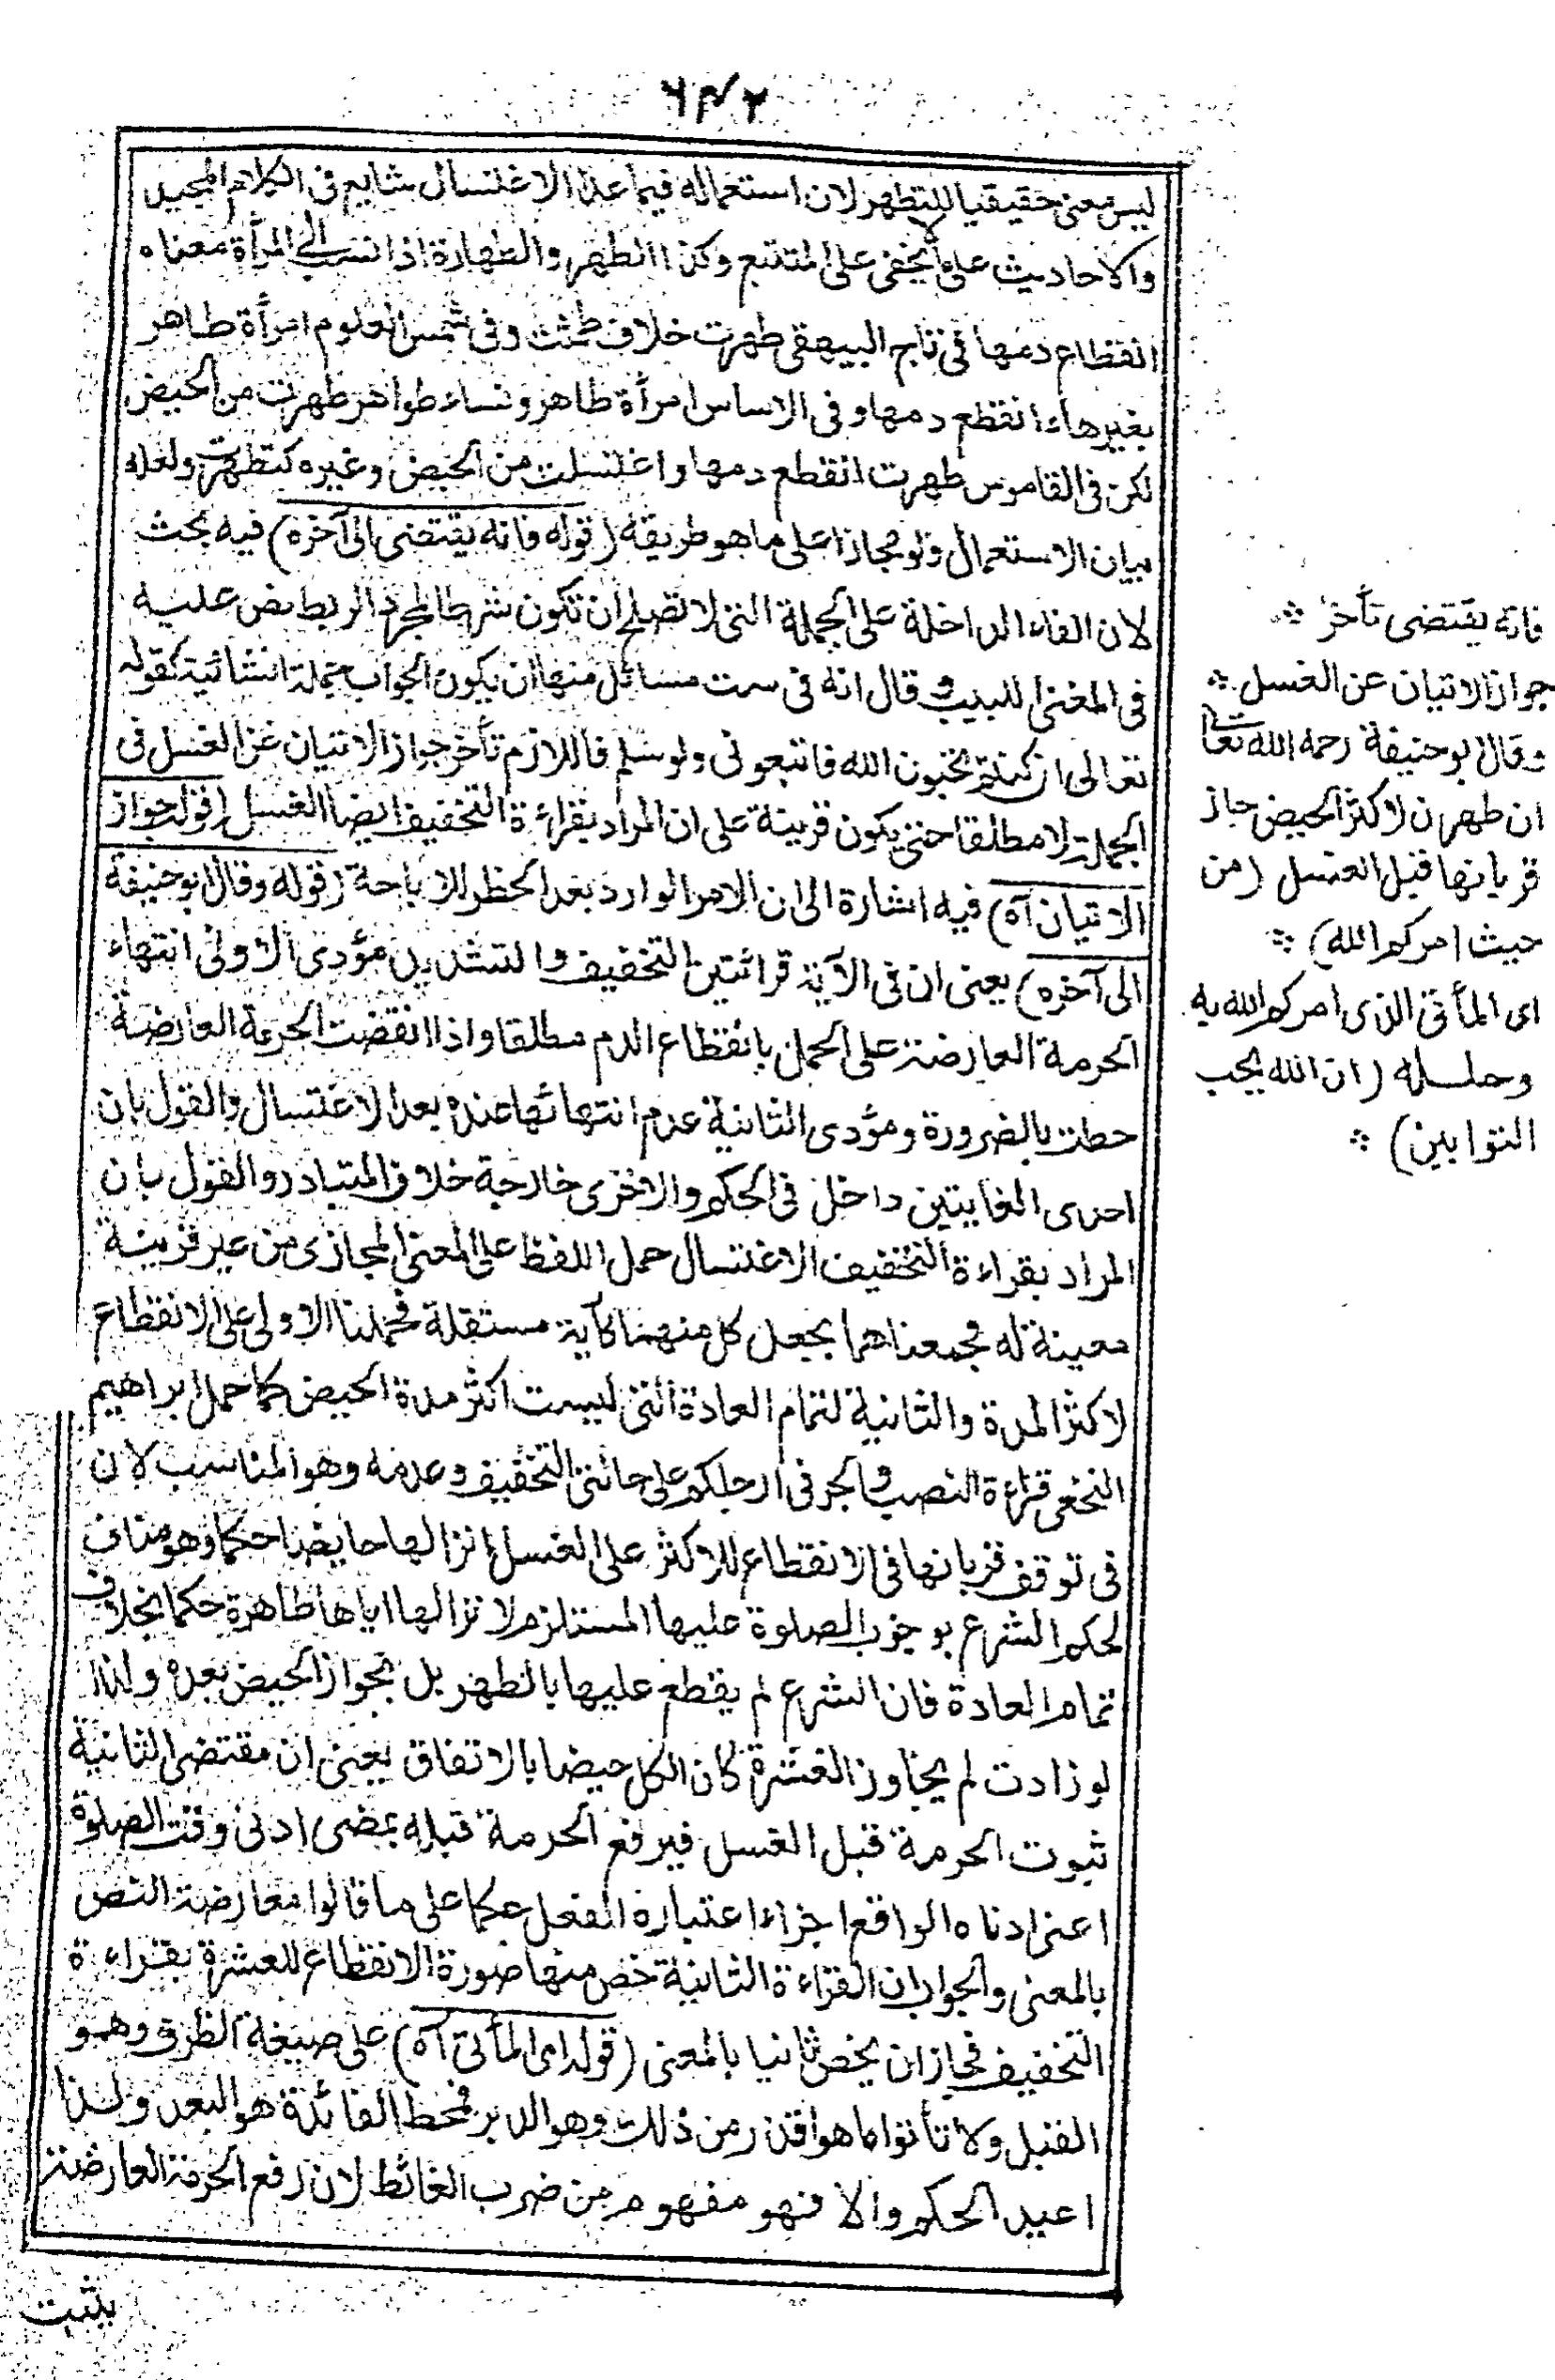 ٦٣٢
ليس معنى حقيقيا للتطهر لان استعماله فيما عدا الاغتسال شايع فى الكلام المجيد
والاحاديث على ما لا يخفى على المتتبع وكذا الطهر والطهارة اذا نسب الى المرأة معناه
انقطاع دمها فى تاج البيهقى طهرت خلاف طمثت وفى شمس العلوم امرأة طاهر
بغيرهاء انقطع دمها وفى الاساس امرأة طاهر ونساء طواهر طهرت من الحيض
لكن فى القاموس طهرت انقطع دمها واغتسلت من الحيض وغيره كتطهرت ولعله
بيان الاستعمال ولو مجازا على ما هو طريقه (قوله فانه يقتضى الى آخره) فيه بحث
لان الفاء الداخلة على الجملة التى لا تصلح ان تكون شرطا لمجرد الربط نص عليه
فى المغنى اللبيب وقال انه فى ست مسائل منها ان يكون الجواب جملة انشائية كقوله
تعالى ان كنتم تحبون الله فاتبعونى ولو سلم فاللازم تأخر جواز الاتيان عن الغسل فى
الجملة لا مطلقا حتى يكون قرينة على ان المراد بقراءة التخفيف ايضا الغسل (قوله جواز
الاتيان آه) فيه اشارة الى ان الامر الوارد بعد الحظر للاباحة (قوله وقال ابو حنيفة
الى آخره) يعنى ان فى الآية قرائتين التخفيف والتشديد مؤدى الاولى انتهاء
الحرمة العارضة على الحمل بانقطاع الدم مطلقا واذا انقضت الحرمة العارضة
حطت بالضرورة ومؤدى الثانية عدم انتهائها عنده بعد الاغتسال والقول بان
احدى الغايتين داخل فى الحكم والاخرى خارجة خلاف المتبادر والقول بان
المراد بقراءة التخفيف الاغتسال حمل اللفظ على المعنى المجازى من غير قرينة
معينة له فجمعناهما بجعل كل منهما كآية مستقلة فحملنا الاولى على الانقطاع
لاكثر المدة والثانية لتمام العادة التى ليست اكثر مدة الحيض كما حمل ابراهيم
النخعى قراءة النصب والجر فى ارجلكم على حالتى التخفيف وعدمه وهو المناسب لان
فى توقف قربانها فى الانقطاع للاكثر على الغسل انزالها حايضا حكما وهو مناف
لحكم الشرع بوجوب الصلوة عليها المستلزم لانزالها اياها طاهرة حكما بخلاف
تمام العادة فان الشرع لم يقطع عليها بالطهر بل بجواز الحيض بعده ولذا
لو زادت لم يجاوز العشرة كان الكل حيضا بالاتفاق يعنى ان مقتضى الثانية
ثبوت الحرمة قبل الغسل فيرفع الحرمة قبله بمضى ادنى وقت الصلوة
اعنى ادناه الواقع اجزاء اعتباره الفعل حكما على ما قالوا معارضة النص
بالمعنى والجواب ان القراءة الثانية خص منها صورة الانقطاع للعشرة بقراءة
التخفيف فجاز ان يخص ثانيا بالمعنى (قوله اى المأتى آه) على صيغة الظرف وهو
القبل ولا تأتوا ما هو اقذر من ذلك وهو الدبر فمحط الفائدة هو البعد ولذا
اعيد الحكم والا فهو مفهوم من ضرب الغائط لان رفع الحرمة العارضة
يثبت
فانه يقتضى تأخر
جواز الاتيان عن الغسل
وقال ابو حنيفة رحمه الله تعالى
ان طهرن لاكثر الحيض جاز
قربانها قبل الغسل (من
حيث امركم الله)
اى المأتى الذى امركم الله به
وحلله (ان الله يحب
التوابين)